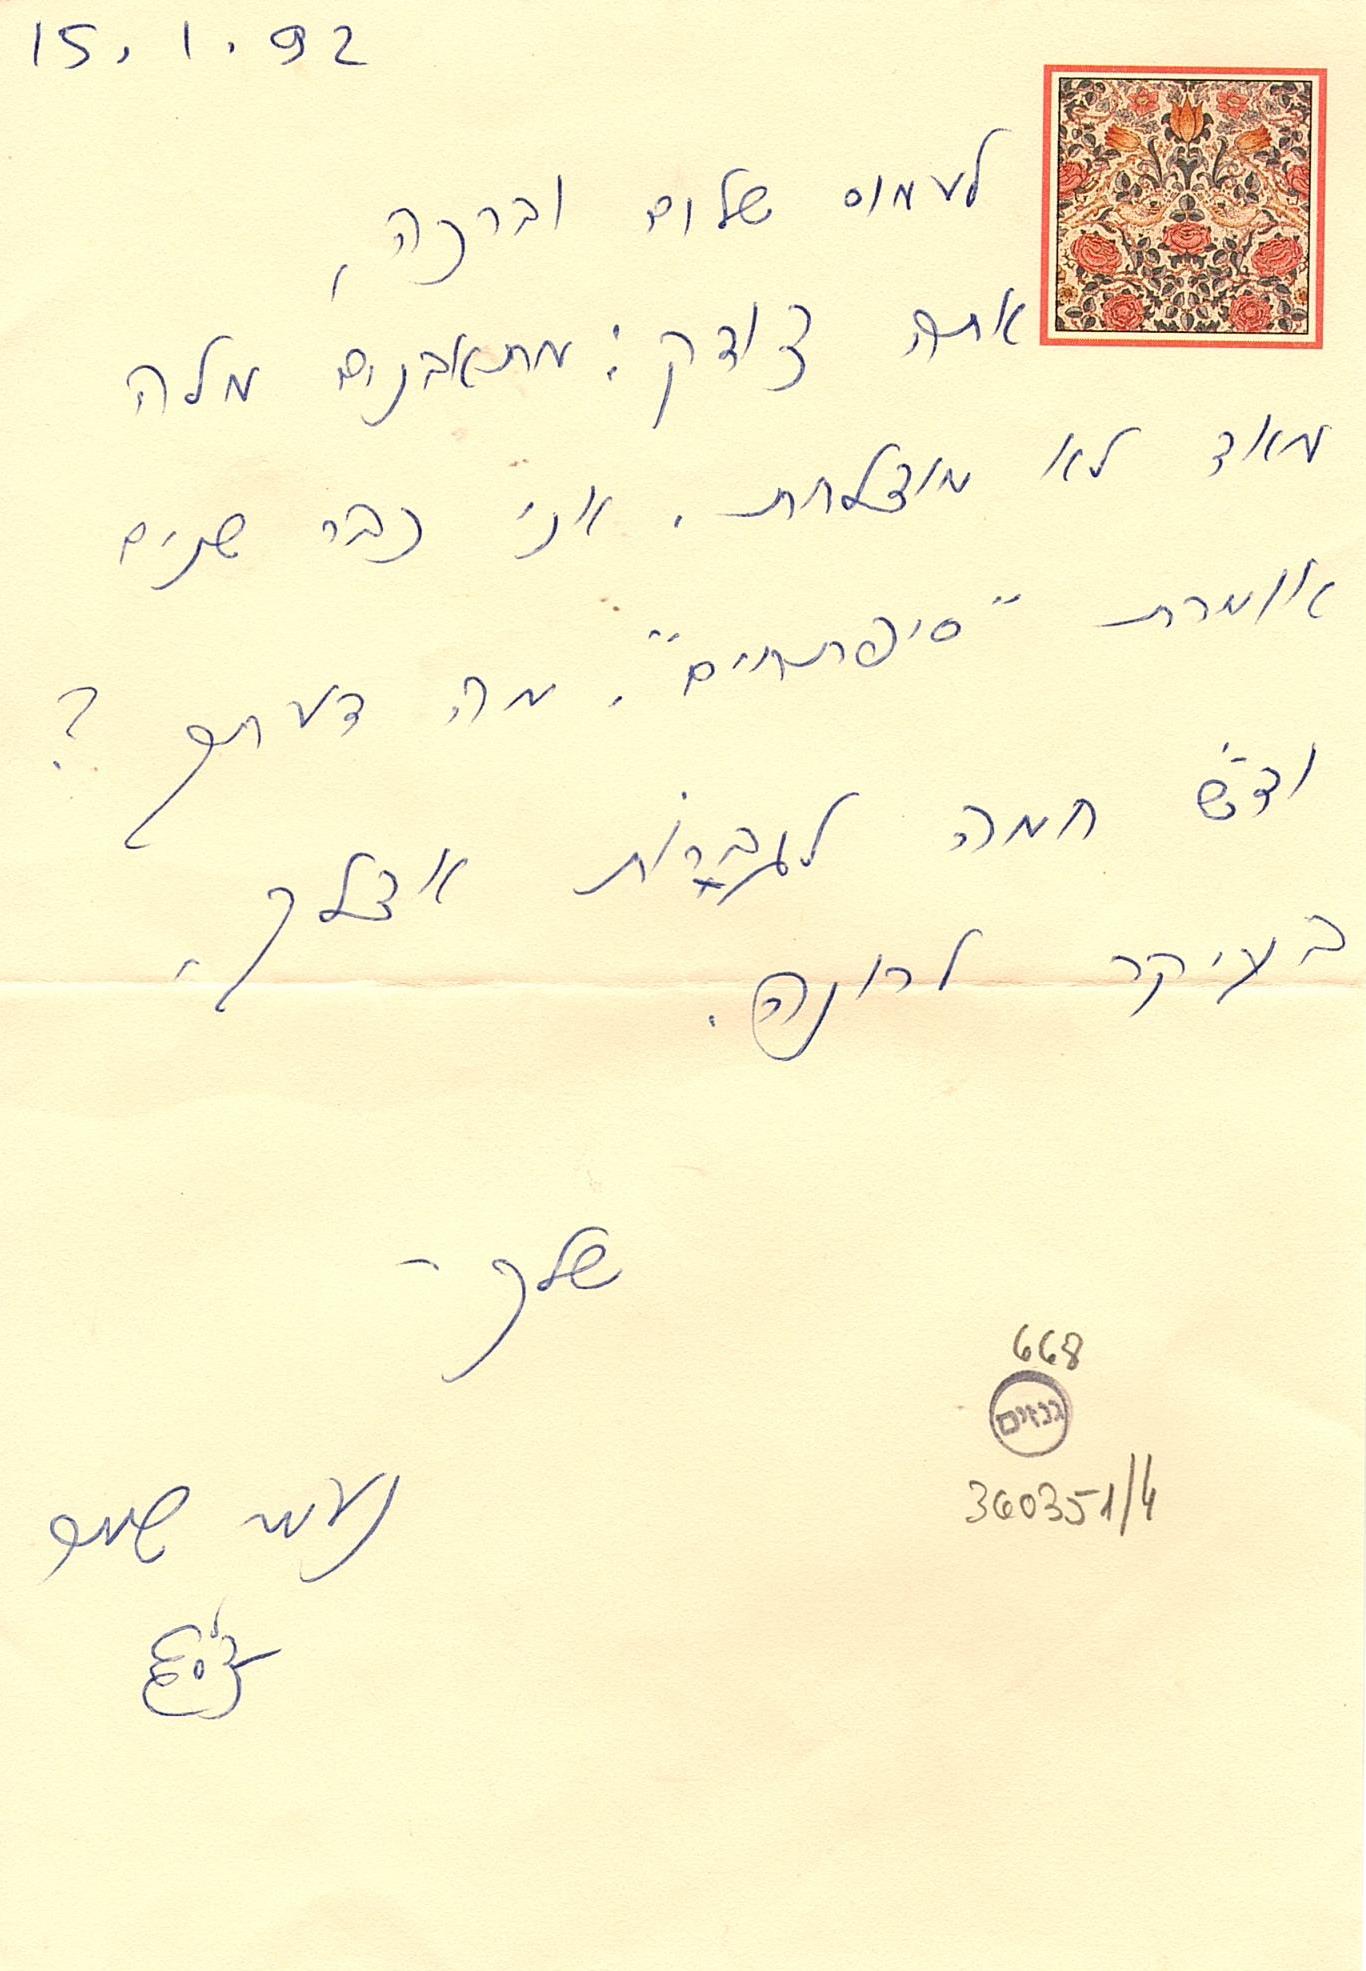 15.1.92
לעמוס שלום וברכה,
אתה צודק: מתאבנים מלה
מאד לא מוצלחת. אני כבר שנים
אומרת "סיפתחים". מה דעתך?
וד"ש חמה לגברות אצלך,
בעיקר לרונה.
שלך -
נעמי שמר
668
גנזים
360351/4